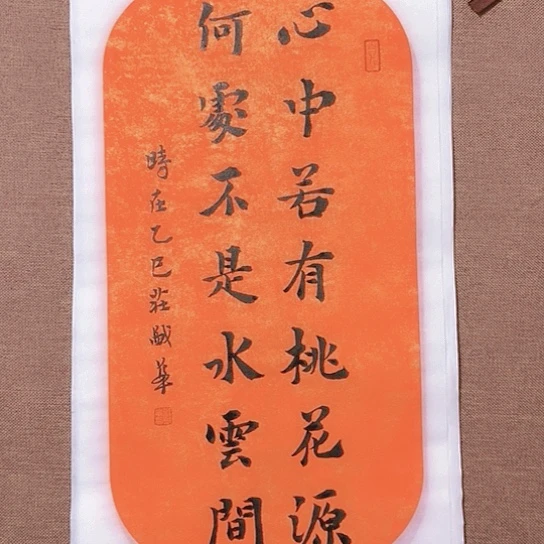 心中若有桃花源
何處不是水雲間
時在乙巳莊獻華